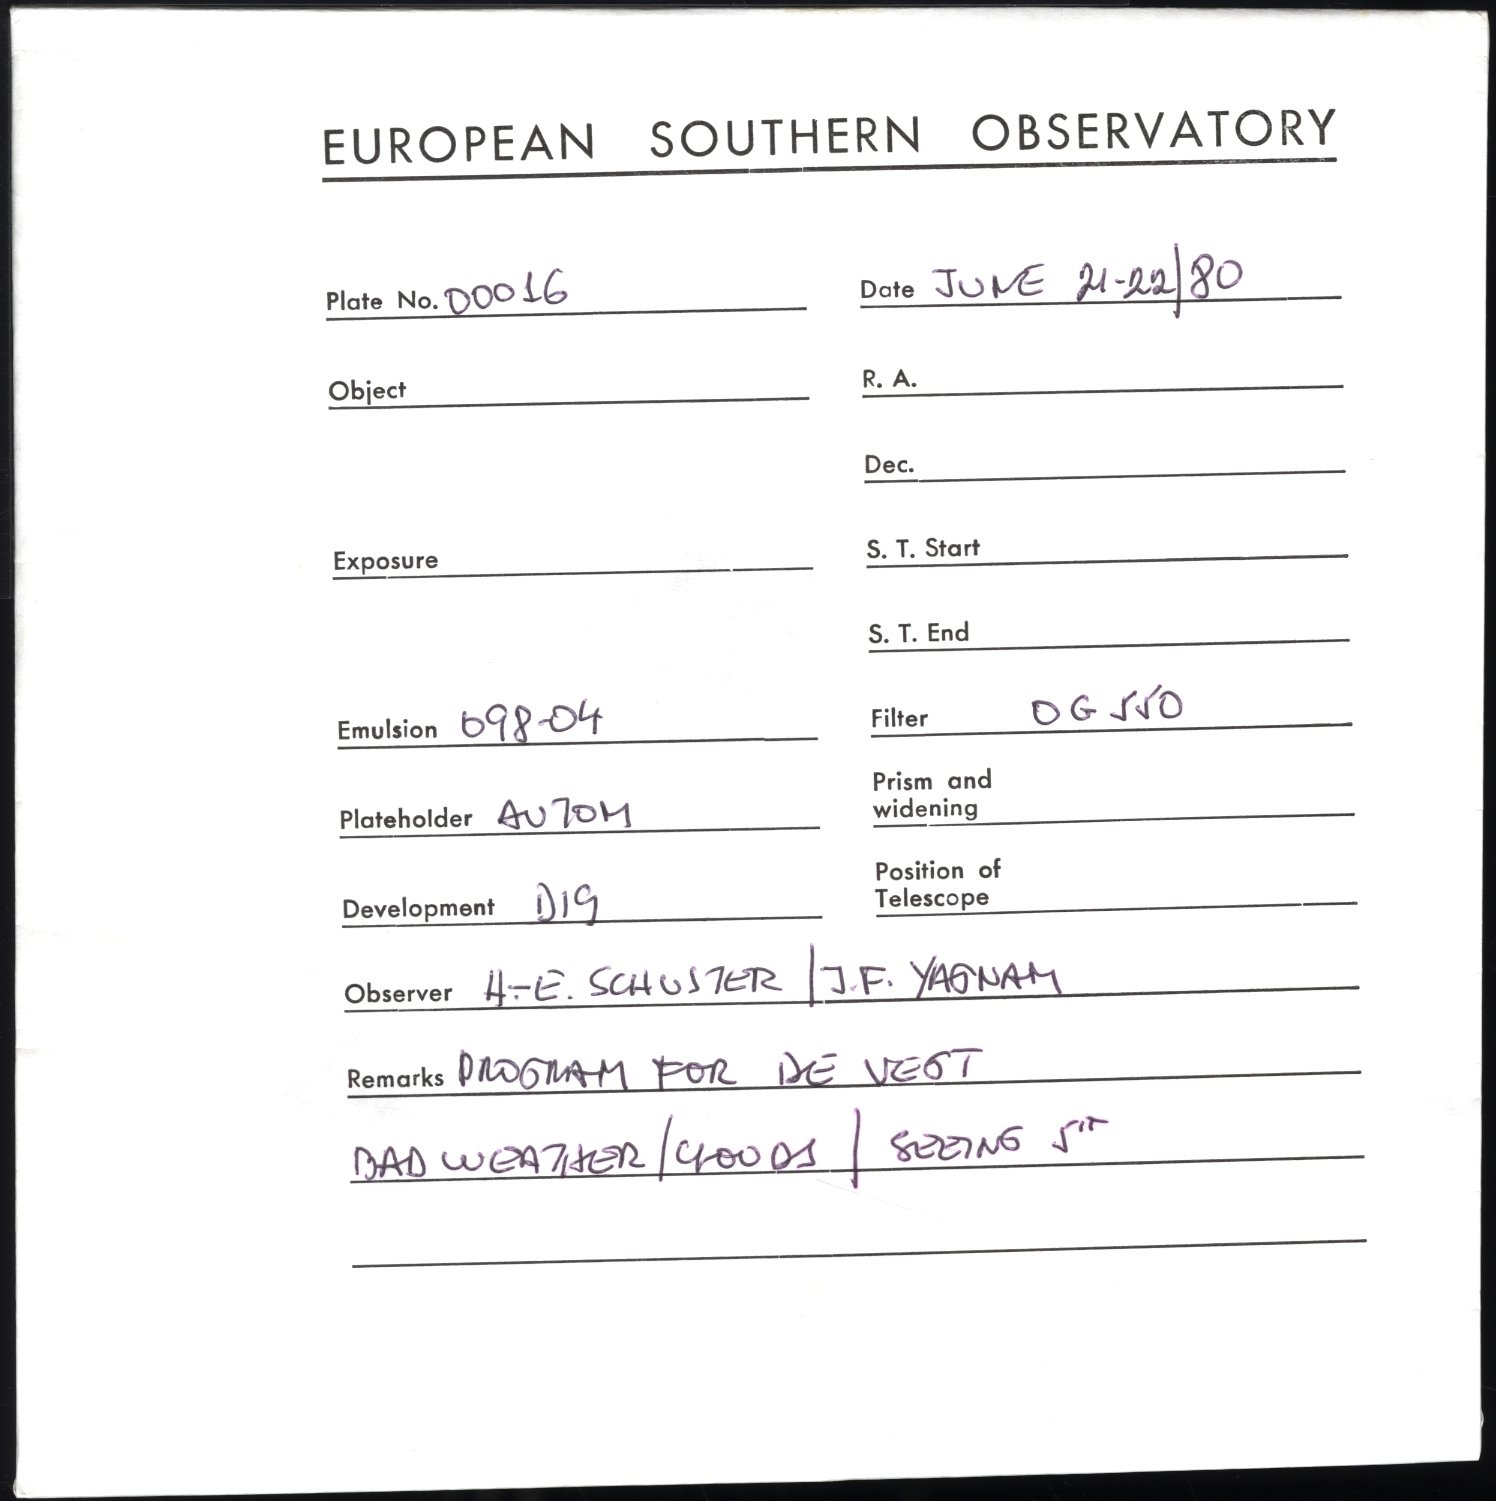 EUROPEAN SOUTHERN OBSERVATORY
Plate No. 00016 Date JUNE 21-22/80
Object R. A.
Dec.
Exposure S. T. Start
S. T. End
Emulsion 098-04 Filter OG 550
Prism and
widening
Plateholder AUTOM
Position of
Telescope
Development D19
Observer H.-E. SCHUSTER / J.F. YAGNAM
Remarks PROGRAM FOR DE VEGT
BAD WEATHER / CLOUDS / SEEING 5"